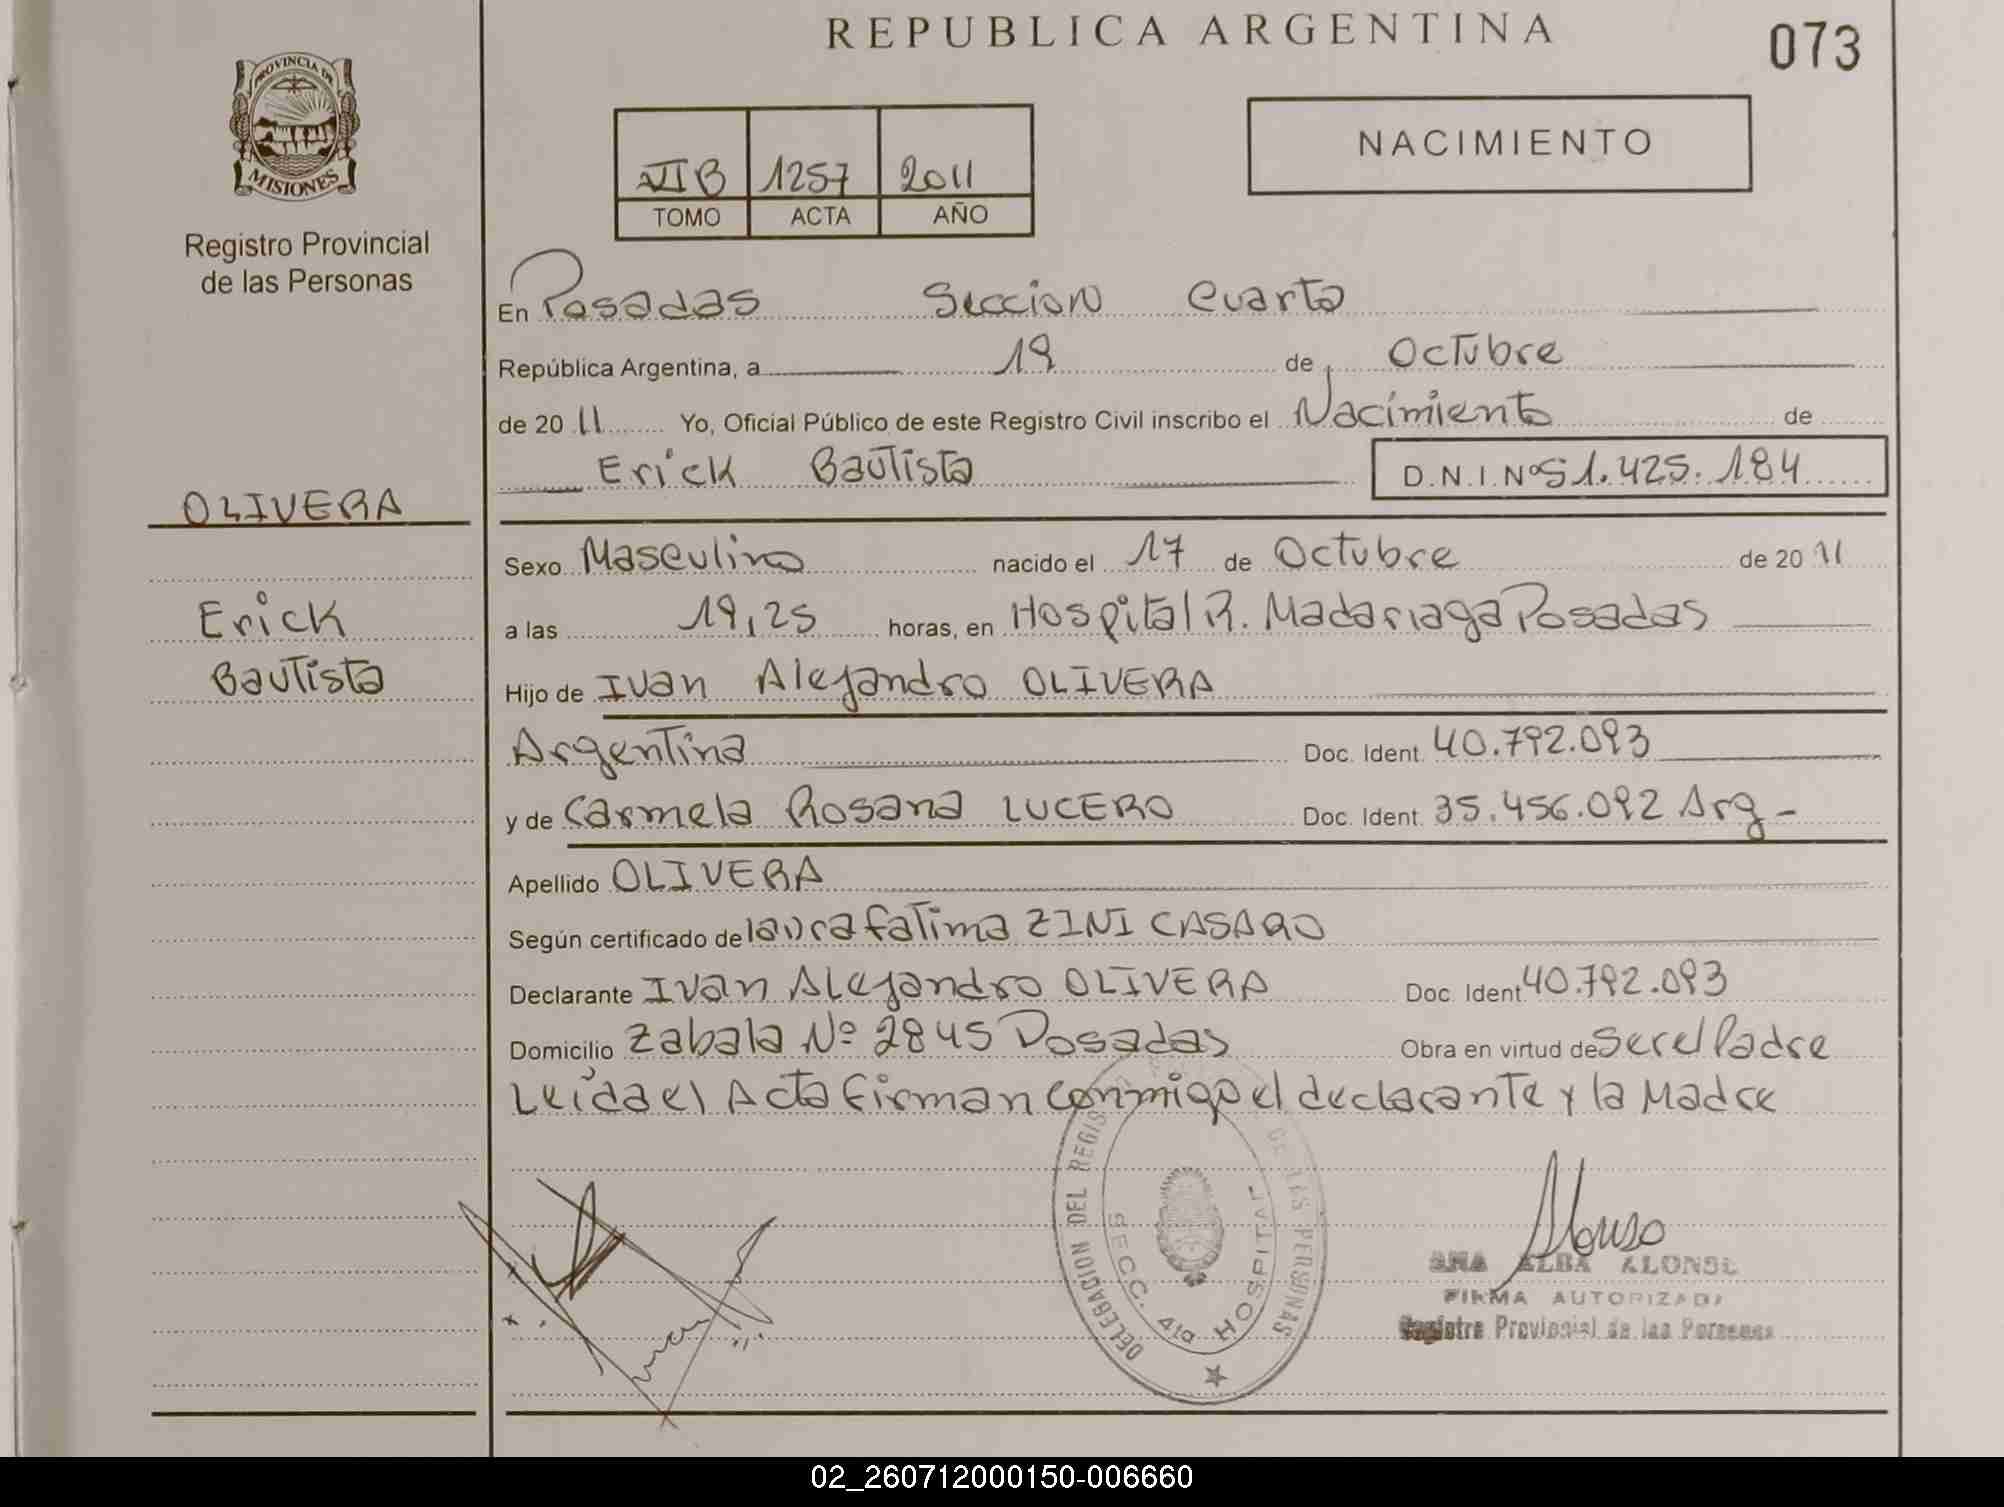 REPUBLICA ARGENTINA
073
PROVINCIA DE
MISIONES
Registro Provincial
de las Personas
VII B 1257 2011
TOMO ACTA AÑO
NACIMIENTO
En Posadas Seccion Cuarta
República Argentina, a 19 de Octubre
de 20 11 Yo, Oficial Público de este Registro Civil inscribo el Nacimiento de
Erick Bautista D.N.I.Nº 51.425.184
OLIVERA
Erick
Bautista
Sexo Masculino nacido el 17 de Octubre de 20 11
a las 19,25 horas, en Hospital R. Madariaga Posadas
Hijo de Ivan Alejandro OLIVERA
Argentina Doc. Ident. 40.792.093
y de Carmela Rosana LUCERO Doc. Ident. 35.456.092 Arg -
Apellido OLIVERA
Según certificado de laura fatima ZINI CASARO
Declarante Ivan Alejandro OLIVERA Doc Ident 40.792.093
Domicilio Zabala Nº 2845 Posadas Obra en virtud de ser el Padre
Leída el Acta firman conmigo el declarante y la Madre
DELEGACION DEL REGIS DE LAS PERSONAS
SECC. 4ta HOSPITAL
Alonso
ANA ALBA ALONSO
FIRMA AUTORIZADA
Registro Provincial de las Personas
02_260712000150-006660